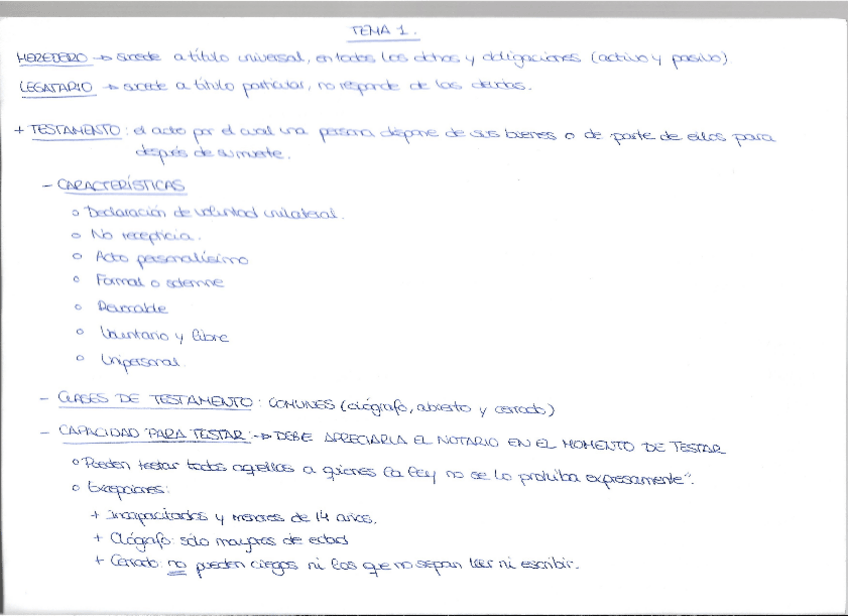 TEMA 1.
HEREDERO → sucede a título universal, en todos los dchos y obligaciones (activo y pasivo)
LEGATARIO → sucede a título particular, no responde de las deudas.
+ TESTAMENTO: el acto por el cual una persona dispone de sus bienes o de parte de ellos para
después de su muerte.
- CARACTERÍSTICAS
o Declaración de voluntad unilateral.
o No recepticia.
o Acto personalísimo
o Formal o solemne
o Revocable
o Voluntario y libre
o Unipersonal.
- CLASES DE TESTAMENTO: COMUNES (ológrafo, abierto y cerrado)
- CAPACIDAD PARA TESTAR: → DEBE APRECIARLA EL NOTARIO EN EL MOMENTO DE TESTAR
o "Pueden testar todos aquellos a quienes la ley no se lo prohiba expresamente".
o Excepciones:
+ Incapacitados y menores de 14 años.
+ Ológrafo: sólo mayores de edad
+ Cerrado: no pueden ciegos ni los que no sepan leer ni escribir.